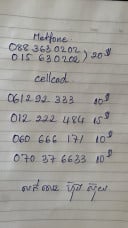 Metfone
088 363 0202
015 630202 ) 20$
cellcad
0612 92 333 10$
012 222 484 15$
060 666 171 10$
070 37 6633 10$